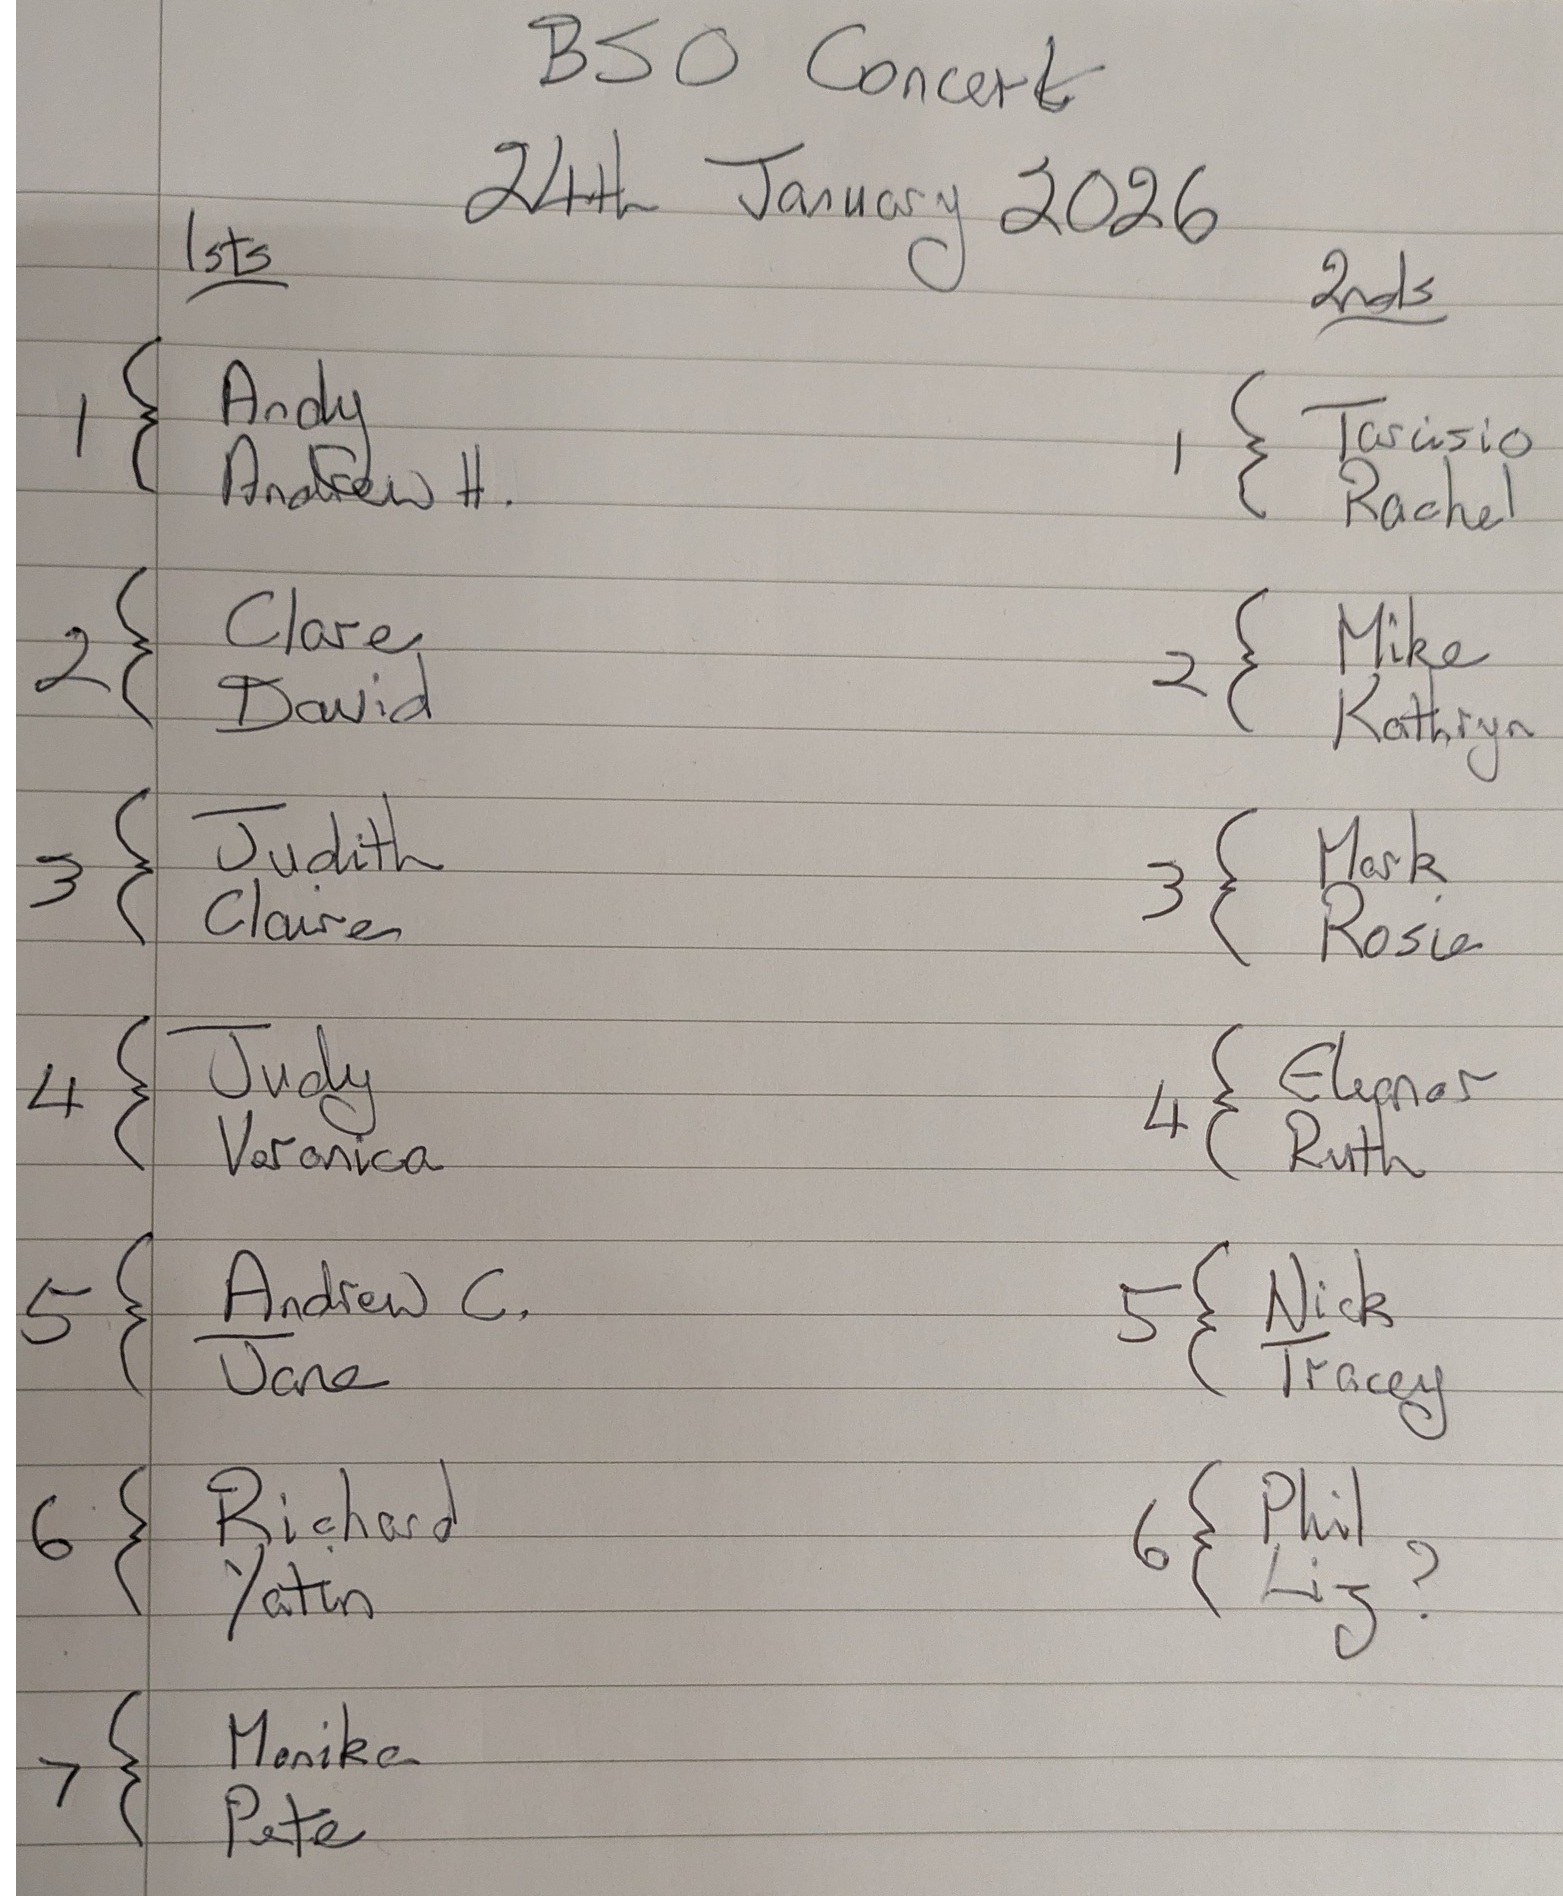 BSO Concert
24th January 2026
1sts
1 { Andy
Andrew H.
2 { Clare
David
3 { Judith
Claire
4 { Judy
Veronica
5 { Andrew C.
Jane
6 { Richard
Yatin
7 { Monika
Pete
2nds
1 { Tarcisio
Rachel
2 { Mike
Kathryn
3 { Mark
Rosie
4 { Eleanor
Ruth
5 { Nick
Tracey
6 { Phil
Liz ?